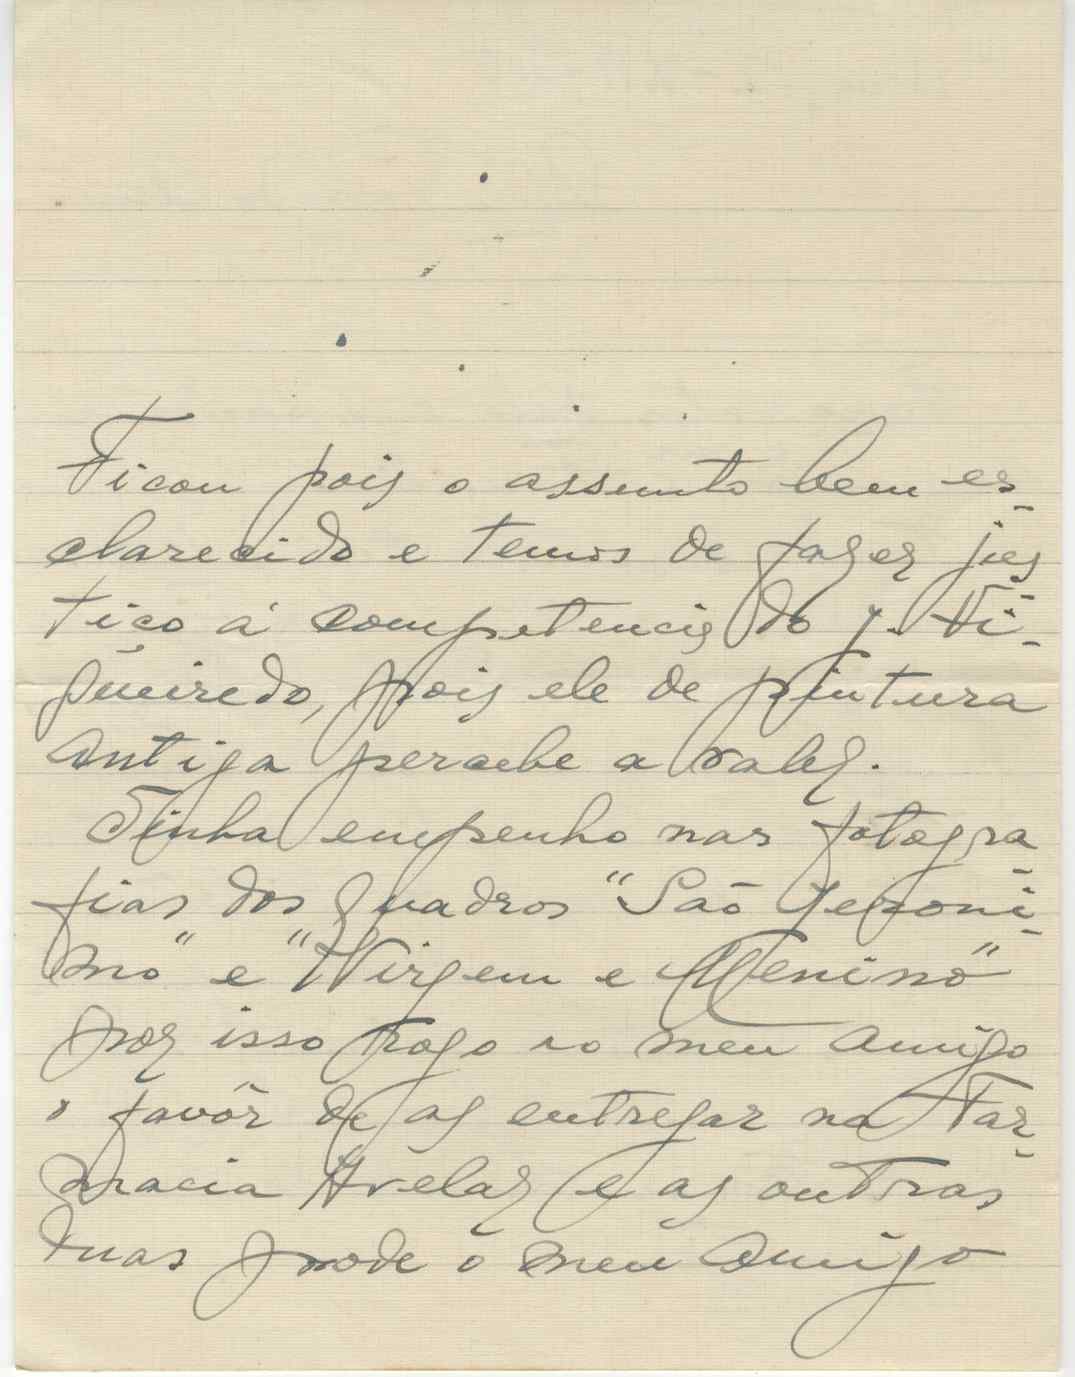 Ficou pois o assunto bem es-
clarecido e temos de fazer jus
tiça á competencia do J. Fi-
gueiredo, pois ele de pintura
antiga percebe a valer.
Tinha empenho nas fotogra-
fias dos quadros "São Jeroni-
mo" e "Virgem e Menino"
por isso rogo ao meu amigo
o favôr de as entregar na Far-
macia Avelar e as outras
duas pode o meu amigo